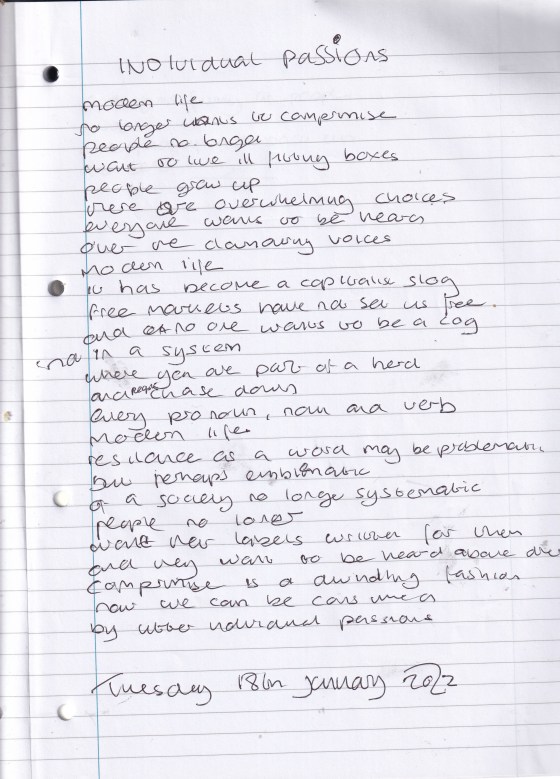 Individual Passions
modern life
no longer wants to compromise
people no longer
want to live in boxes
people grow up
there are overwhelming choices
everyone wants to be heard
over the clamouring voices
modern life
it has become a capitalist slog
free markets have not set us free.
and no one wants to be a cog
in a system
where you are part of a herd
and chase down
every pronoun, noun and verb
modern life
as a word may be problematic
but perhaps emblematic
of a society no longer systematic
people no longer
want their labels written for them
and they want to be heard above
compromise is a dwindling fashion
now we can be consumed
by individual passions
Tuesday 18th January 2022